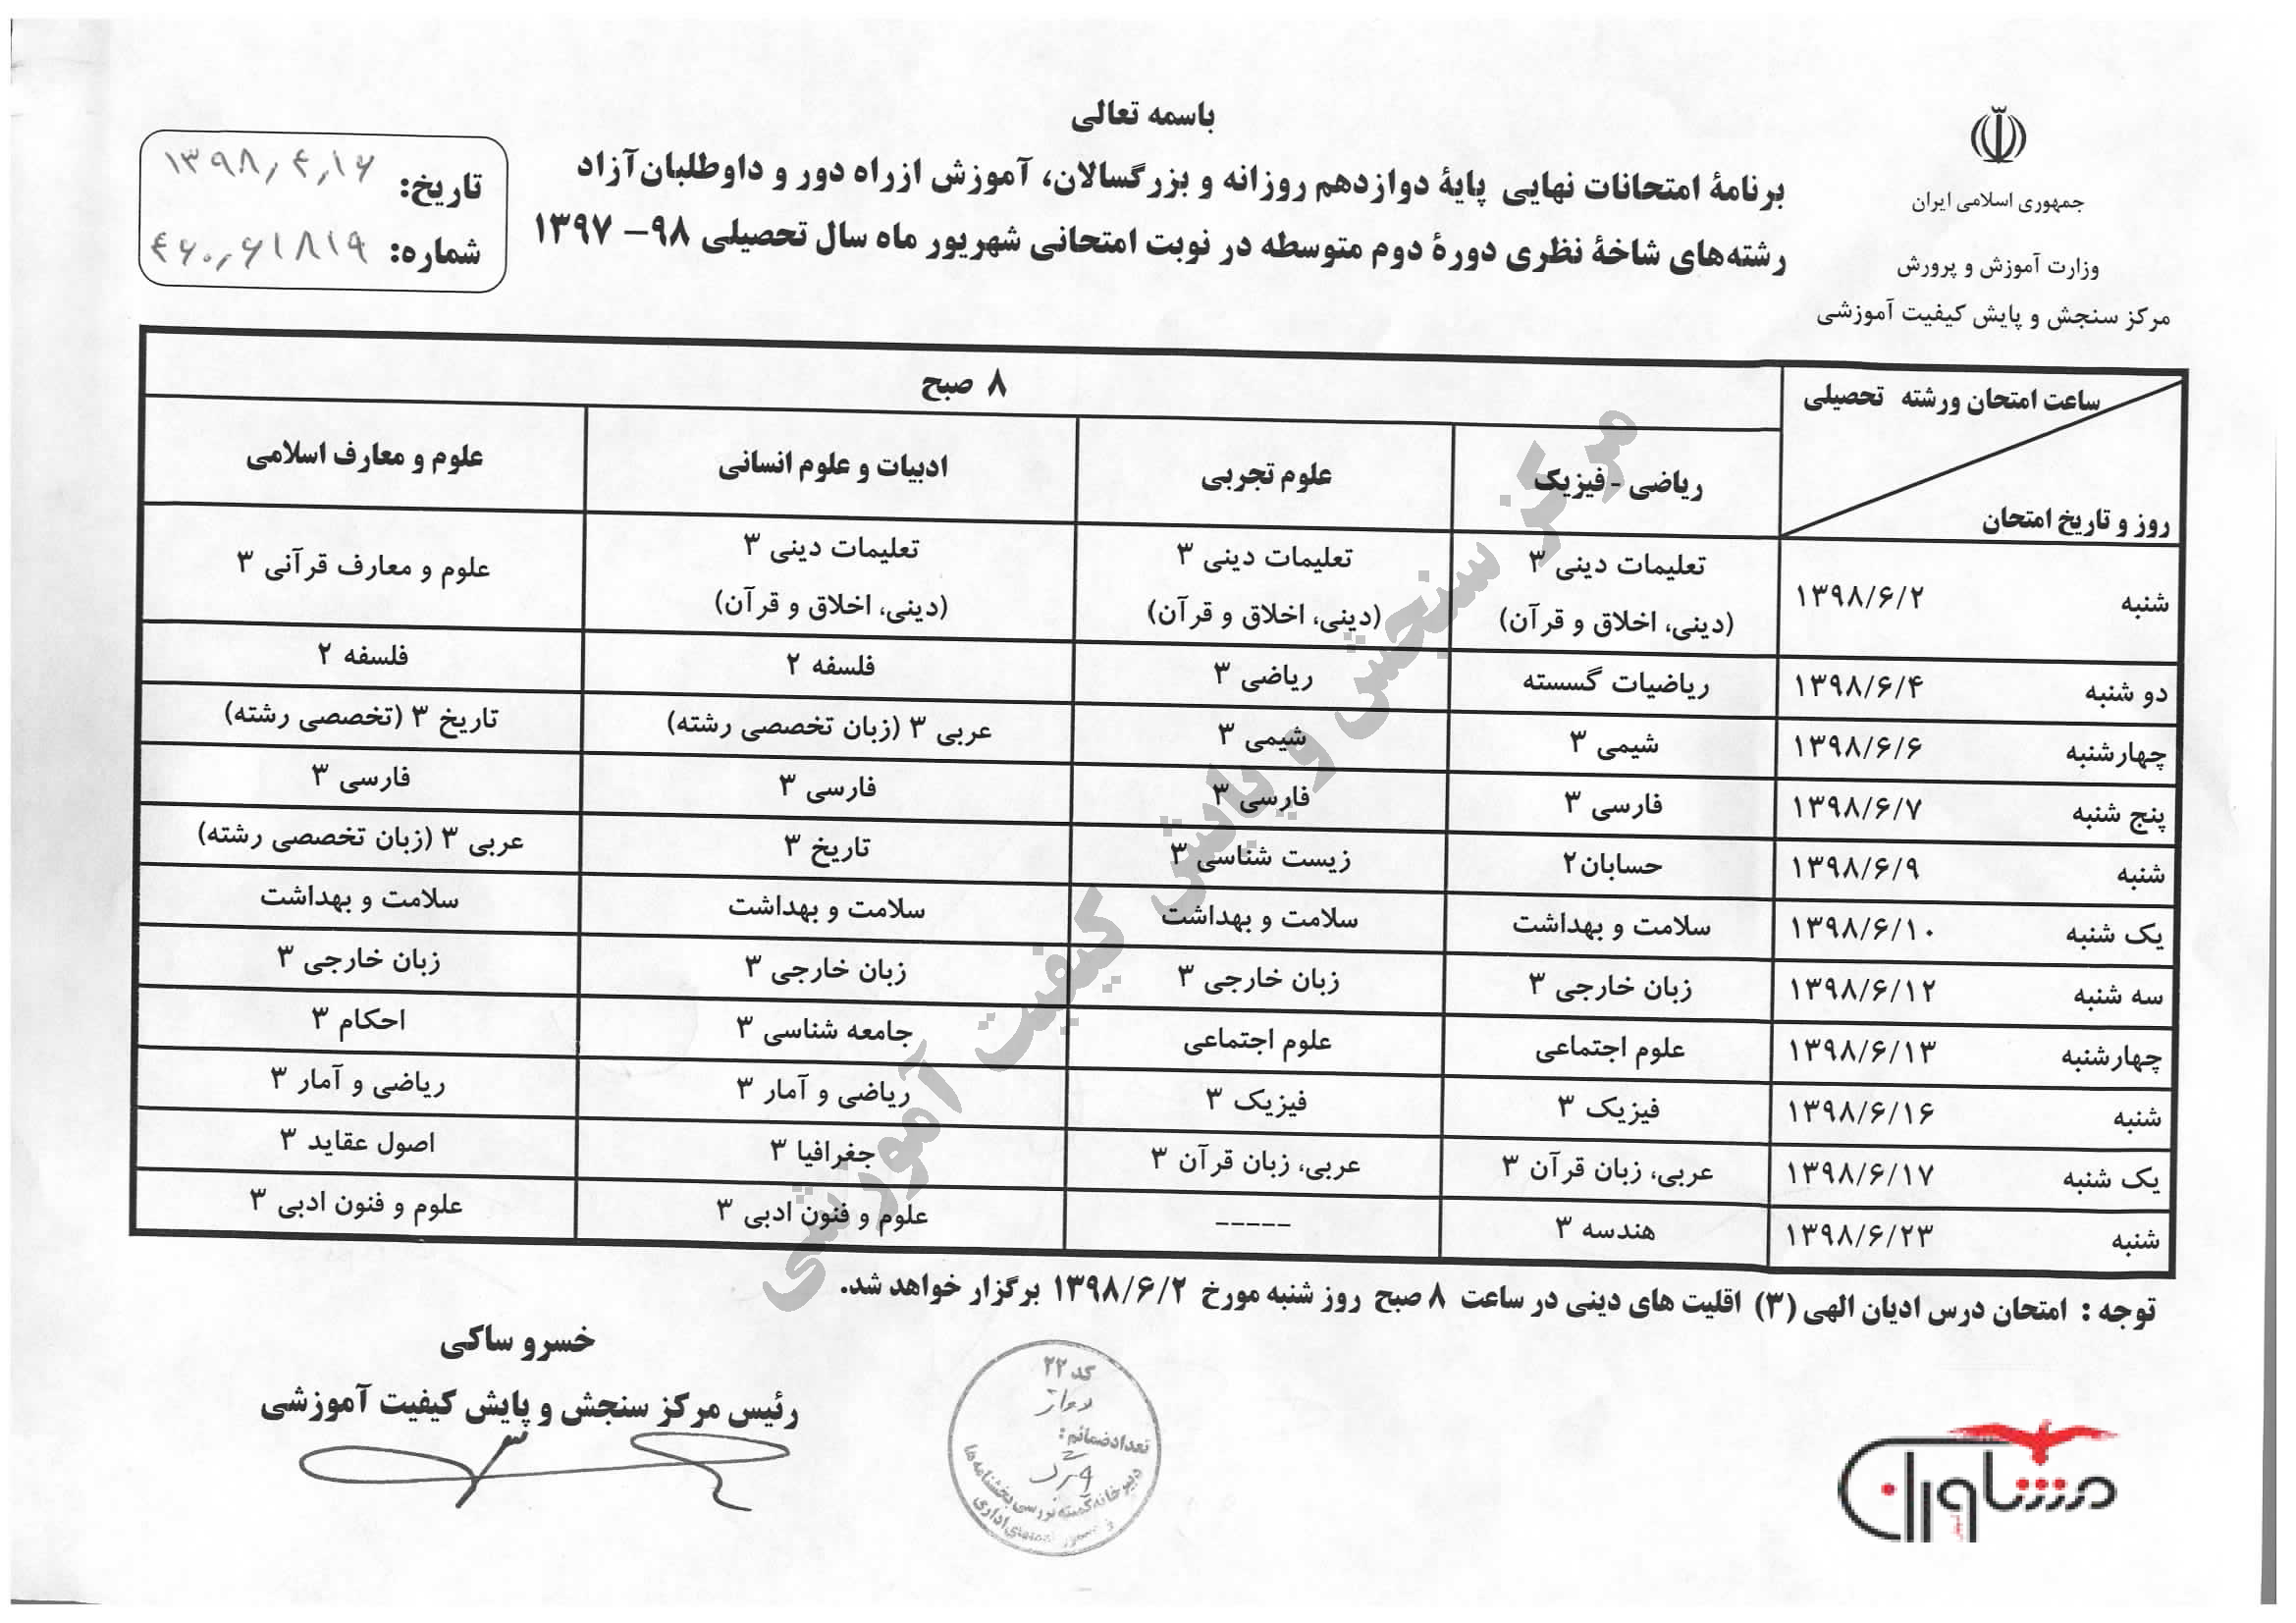 باسمه تعالی
برنامهٔ امتحانات نهایی پایهٔ دوازدهم روزانه و بزرگسالان، آموزش ازراه دور و داوطلبان‌آزاد
رشته‌های شاخهٔ نظری دورهٔ دوم متوسطه در نوبت امتحانی شهریور ماه سال تحصیلی ۹۸– ۱۳۹۷
جمهوری اسلامی ایران
وزارت آموزش و پرورش
مرکز سنجش و پایش کیفیت آموزشی
تاریخ: ۱۳۹۸,۴,۱۶
شماره:
ساعت امتحان ورشته تحصیلی
۸ صبح
روز و تاریخ امتحان
ریاضی - فیزیک علوم تجربی ادبیات و علوم انسانی علوم و معارف اسلامی
شنبه ۱۳۹۸/۶/۲ تعلیمات دینی ۳ تعلیمات دینی ۳ تعلیمات دینی ۳ علوم و معارف قرآنی ۳
(دینی، اخلاق و قرآن) (دینی، اخلاق و قرآن) (دینی، اخلاق و قرآن)
دو شنبه ۱۳۹۸/۶/۴ ریاضیات گسسته ریاضی ۳ فلسفه ۲ فلسفه ۲
چهارشنبه ۱۳۹۸/۶/۶ شیمی ۳ شیمی ۳ عربی ۳ (زبان تخصصی رشته) تاریخ ۳ (تخصصی رشته)
پنج شنبه ۱۳۹۸/۶/۷ فارسی ۳ فارسی ۳ فارسی ۳ فارسی ۳
شنبه ۱۳۹۸/۶/۹ حسابان۲ زیست شناسی ۳ تاریخ ۳ عربی ۳ (زبان تخصصی رشته)
یک شنبه ۱۳۹۸/۶/۱۰ سلامت و بهداشت سلامت و بهداشت سلامت و بهداشت سلامت و بهداشت
سه شنبه ۱۳۹۸/۶/۱۲ زبان خارجی ۳ زبان خارجی ۳ زبان خارجی ۳ زبان خارجی ۳
چهارشنبه ۱۳۹۸/۶/۱۳ علوم اجتماعی علوم اجتماعی جامعه شناسی ۳ احکام ۳
شنبه ۱۳۹۸/۶/۱۶ فیزیک ۳ فیزیک ۳ ریاضی و آمار ۳ ریاضی و آمار ۳
یک شنبه ۱۳۹۸/۶/۱۷ عربی، زبان قرآن ۳ عربی، زبان قرآن ۳ جغرافیا ۳ اصول عقاید ۳
شنبه ۱۳۹۸/۶/۲۳ هندسه ۳ ----- علوم و فنون ادبی ۳ علوم و فنون ادبی ۳
مرکز سنجش و پایش کیفیت آموزشی
توجه : امتحان درس ادیان الهی (۳) اقلیت های دینی در ساعت ۸ صبح روز شنبه مورخ ۱۳۹۸/۶/۲ برگزار خواهد شد.
خسرو ساکی
رئیس مرکز سنجش و پایش کیفیت آموزشی
کد ۲۲
تعدادضمائم:
دبیرخانه کمیته بررسی بخشنامه ها
مشاوران